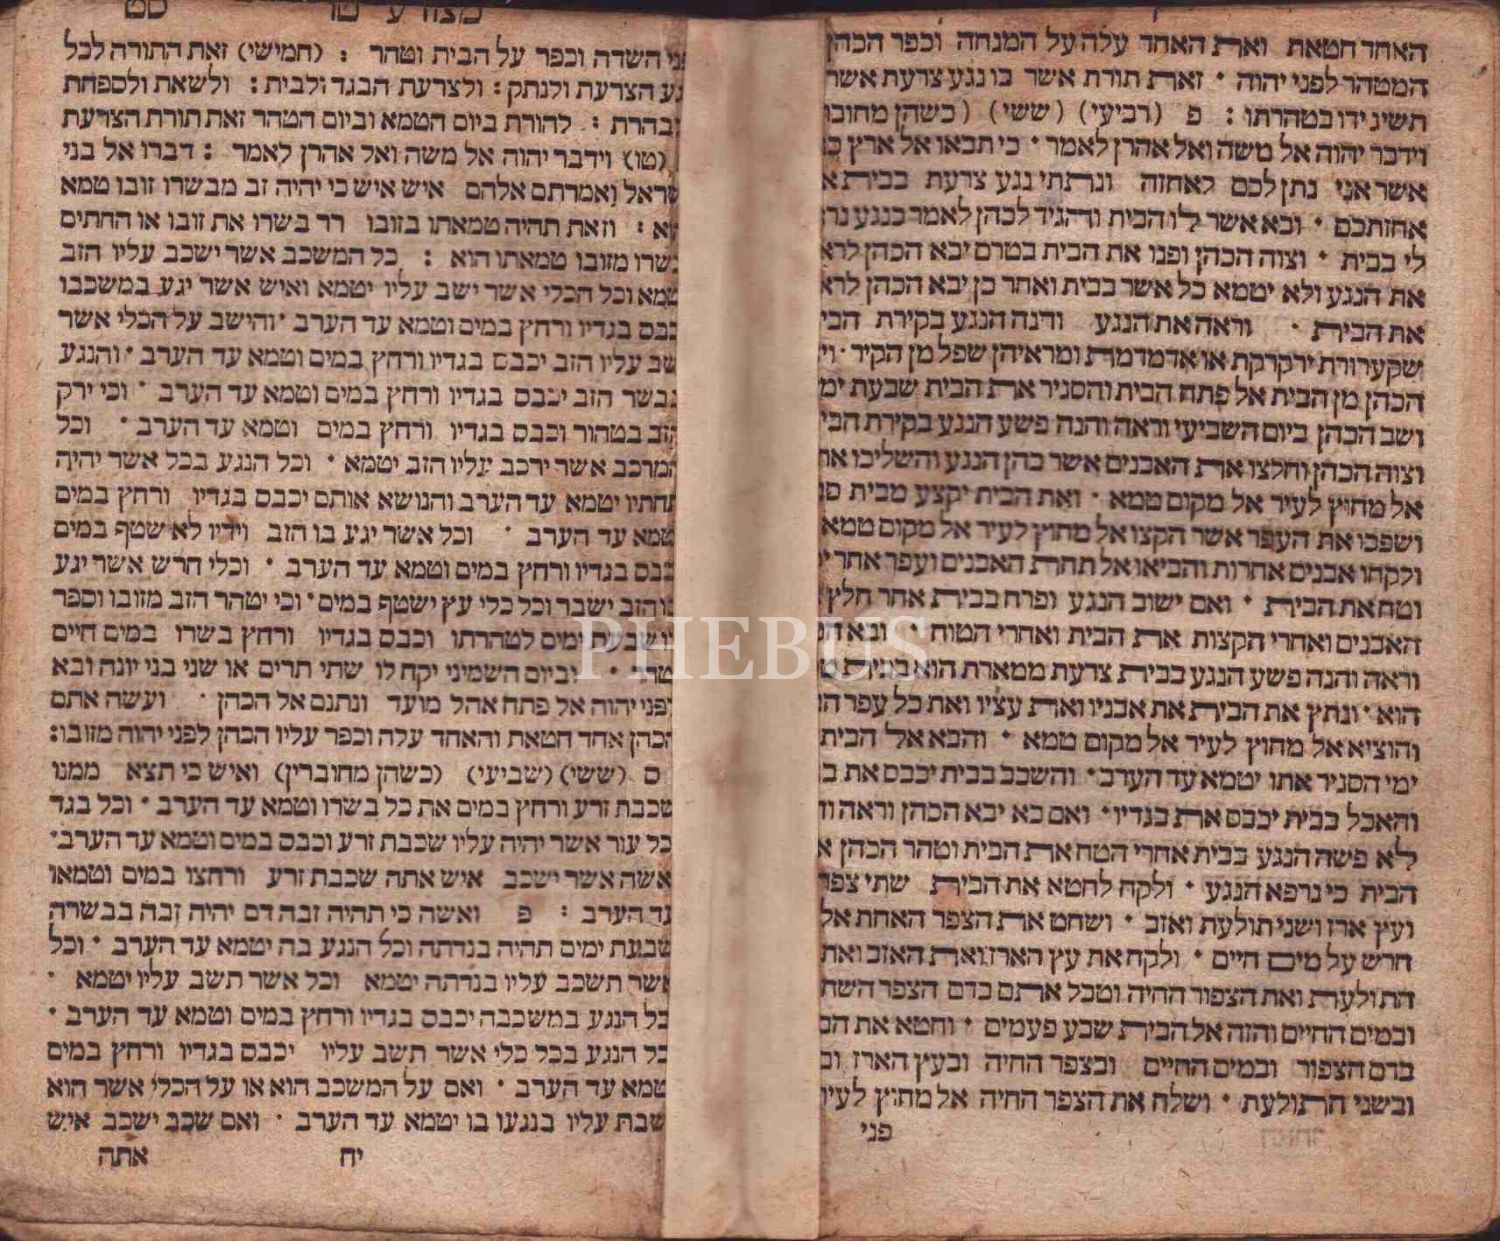 האחד חטאת ואת האחד עלה על המנחה וכפר הכהן
המטהר לפני יהוה * זאת תורת אשר בו נגע צרעת אשר
תשיג ידו בטהרתו : פ (רביעי) (ששי) (כשהן מחוברין
וידבר יהוה אל משה ואל אהרן לאמר * כי תבאו אל ארץ
אשר אני נתן לכם לאחזה ונתתי נגע צרעת בבית
אחזתכם * ובא אשר לו הבית והגיד לכהן לאמר כנגע
לי בבית * וצוה הכהן ופנו את הבית בטרם יבא הכהן
את הנגע ולא יטמא כל אשר בבית ואחר כן יבא הכהן
את הבית * וראה את הנגע והנה הנגע בקירת
שקערורת ירקרקת או אדמדמת ומראיהן שפל מן הקיר *
הכהן מן הבית אל פתח הבית והסגיר את הבית שבעת
ושב הכהן ביום השביעי וראה והנה פשע הנגע בקירת
וצוה הכהן וחלצו את האבנים אשר בהן הנגע והשליכו
אל מחוץ לעיר אל מקום טמא * ואת הבית יקצע מבית
ושפכו את העפר אשר הקצו אל מחוץ לעיר אל מקום טמא
ולקחו אבנים אחרות והביאו אל תחת האבנים ועפר אחר
וטח את הבית * ואם ישוב הנגע ופרח בבית אחר חלץ
האבנים ואחרי הקצות את הבית ואחרי הטוח * ובא
וראה והנה פשע הנגע בבית צרעת ממארת הוא בבית
הוא * ונתץ את הבית את אבניו ואת עציו ואת כל עפר
והוציא אל מחוץ לעיר אל מקום טמא * והבא אל הבית
ימי הסגיר אתו יטמא עד הערב * והשכב בבית יכבס את
והאכל בבית יכבס את בגדיו * ואם בא יבא הכהן וראה
לא פשה הנגע בבית אחרי הטח את הבית וטהר הכהן
הבית כי נרפא הנגע * ולקח לחטא את הבית שתי
ועץ ארז ושני תולעת ואזב * ושחט את הצפר האחת אל
חרש על מים חיים * ולקח את עץ הארז ואת האזב ואת
התולעת ואת הצפור החיה וטבל אתם בדם הצפר
ובמים החיים והזה אל הבית שבע פעמים * וחטא את
בדם הצפור ובמים החיים ובצפר החיה ובעץ הארז
ובשני התולעת * ושלח את הצפר החיה אל מחוץ לעיר
פני
מצורע טו סט
השדה וכפר על הבית וטהר : (חמישי) זאת התורה לכל
הצרעת ולנתק : ולצרעת הבגד ולבית : ולשאת ולספחת
להורת ביום הטמא וביום הטהר זאת תורת הצרעת
(טו) וידבר יהוה אל משה ואל אהרן לאמר : דברו אל בני
ואמרתם אלהם איש איש כי יהיה זב מבשרו זובו טמא
וזאת תהיה טמאתו בזובו רר בשרו את זובו או החתים
מזובו טמאתו הוא : כל המשכב אשר ישכב עליו הזב
וכל הכלי אשר ישב עליו יטמא ואיש אשר יגע במשכבו
בגדיו ורחץ במים וטמא עד הערב * והישב על הכלי אשר
עליו הזב יכבס בגדיו ורחץ במים וטמא עד הערב * והנגע
הזב יכבס בגדיו ורחץ במים וטמא עד הערב * וכי ירק
הזב בטהור וכבס בגדיו ורחץ במים וטמא עד הערב * וכל
המרכב אשר ירכב עליו הזב יטמא * וכל הנגע בכל אשר יהיה
תחתיו יטמא עד הערב והנושא אותם יכבס בגדיו ורחץ במים
עד הערב * וכל אשר יגע בו הזב וידיו לא שטף במים
בגדיו ורחץ במים וטמא עד הערב * וכלי חרש אשר יגע
הזב ישבר וכל כלי עץ ישטף במים * וכי יטהר הזב מזובו וספר
שבעת ימים לטהרתו וכבס בגדיו ורחץ בשרו במים חיים
* וביום השמיני יקח לו שתי תרים או שני בני יונה ובא
לפני יהוה אל פתח אהל מועד ונתנם אל הכהן * ועשה אתם
הכהן אחד חטאת והאחד עלה וכפר עליו הכהן לפני יהוה מזובו :
ס (ששי) (שביעי) (כשהן מחוברין) ואיש כי תצא ממנו
שכבת זרע ורחץ במים את כל בשרו וטמא עד הערב * וכל בגד
וכל עור אשר יהיה עליו שכבת זרע וכבס במים וטמא עד הערב *
ואשה אשר ישכב איש אתה שכבת זרע ורחצו במים וטמאו
עד הערב : פ ואשה כי תהיה זבה דם יהיה זבה בבשרה
שבעת ימים תהיה בנדתה וכל הנגע בה יטמא עד הערב * וכל
אשר תשכב עליו בנדתה יטמא וכל אשר תשב עליו יטמא *
וכל הנגע במשכבה יכבס בגדיו ורחץ במים וטמא עד הערב *
וכל הנגע בכל כלי אשר תשב עליו יכבס בגדיו ורחץ במים
וטמא עד הערב * ואם על המשכב הוא או על הכלי אשר הוא
ישבת עליו בנגעו בו יטמא עד הערב * ואם שכב ישכב איש
יח אתה
PHEBUS